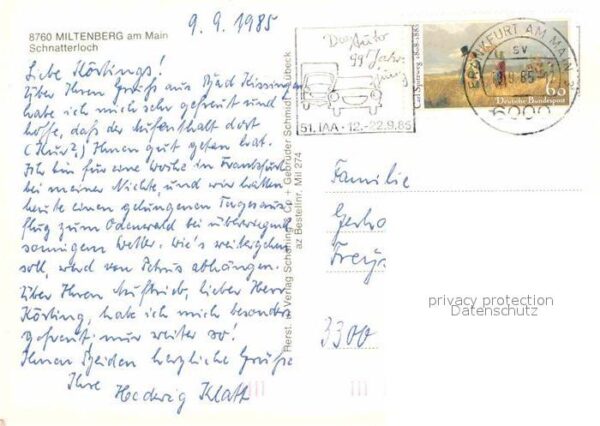 9. 9. 1985
8760 MILTENBERG am Main
Schnatterloch
Liebe Körtings!
Über Ihren Gruß aus Bad Kissingen
habe ich mich sehr gefreut und
hoffe, daß der Aufenthalt dort
(Kur?) Ihnen gut getan hat.
Ich bin für eine Woche in Frankfurt
bei meiner Nichte, und wir hatten
heute einen gelungenen Tagesaus-
flug zum Odenwald bei überwiegend
sonnigem Wetter. Wie's weitergehen
soll, wird von Petrus abhängen.
Über Ihren Auftrieb, lieber Herr
Körting, habe ich mich besonders
gefreut: nur weiter so!
Ihnen Beiden herzliche Grüße
Ihre Hedwig Klatt
Herst. u. Verlag Schöning & Co + Gebrüder Schmidt, Lübeck
az Bestellnr. Mil 274
Das Auto
51. IAA · 12.-22.9.85
Carl Spitzweg 1808-1885
60
Deutsche Bundespost
FRANKFURT AM MAIN
sv
6000
Familie
3300
privacy protection
Datenschutz